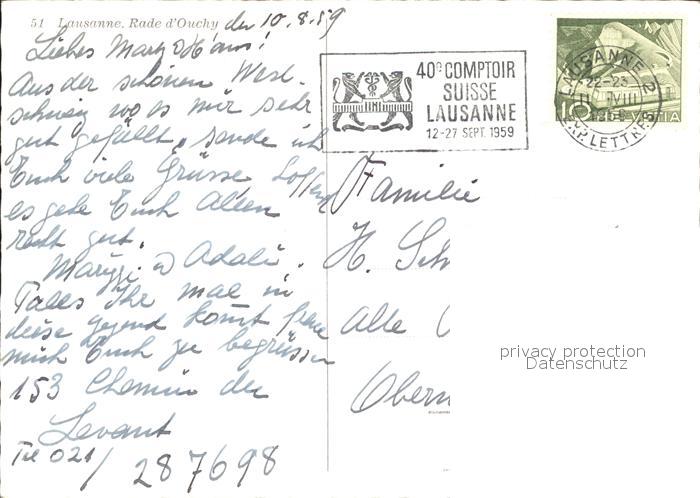 51 Lausanne. Rade d'Ouchy
den 10.8.59
Liebes Mary & Hans!
Aus der schönen West-
schweiz wo es mir sehr
gut gefällt, sende ich
Euch viele Grüsse Hoffend
es gehe Euch Allen
recht gut.
Maryge & Adali.
Falls Ihr mal in
diese gegend kommt freue
mich Euch zu begrüssen
153 Chemin du
Levant
Tel 021/ 287698
40e COMPTOIR
SUISSE
LAUSANNE
12-27 SEPT. 1959
LAUSANNE 2
22-23
VIII
1959
EXP. LETTRES
10
HELVETIA
Familie
H. Sch
Alle
Obern
privacy protection
Datenschutz